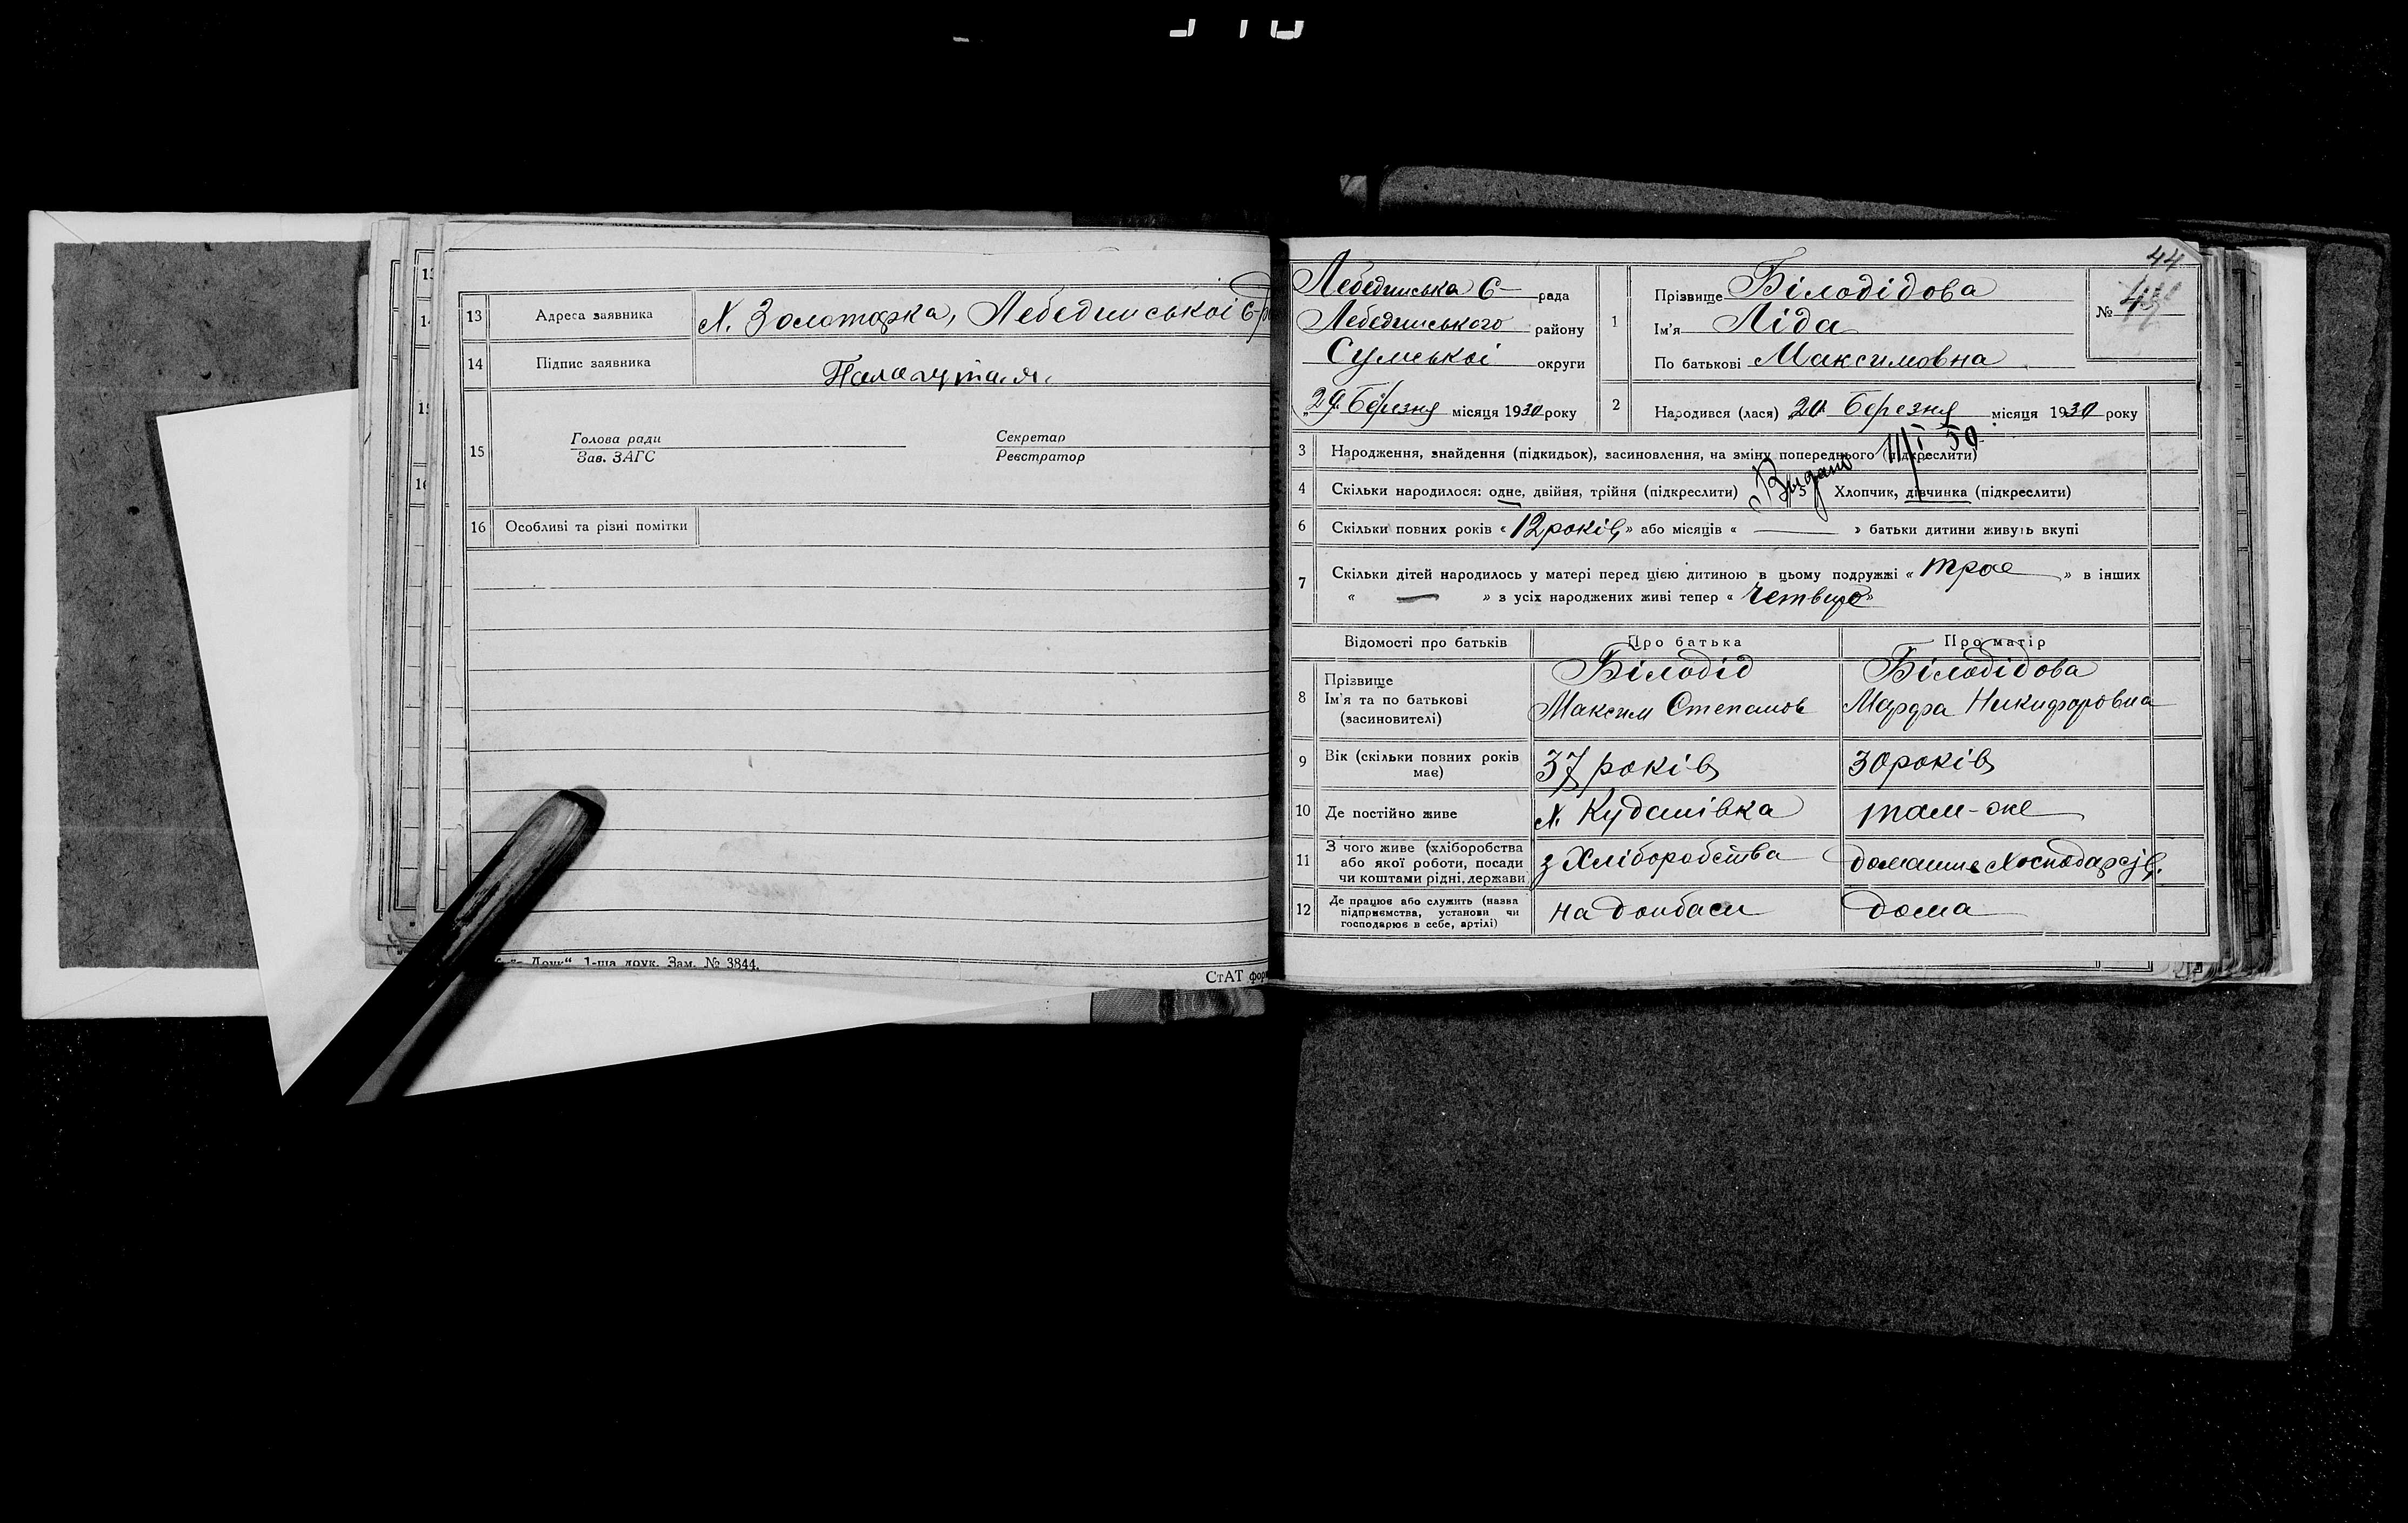 13 Адреса заявника х. Золотарка, Лебединської С-р
14 Підпис заявника
15 Голова ради Секретар
Зав. ЗАГС Реєстратор
16 Особливі та різні помітки
1-ша друк. Зам. № 3844.
СтАТ фор
44
Лебединська С- рада
Лебединського району
Сумської округи
29. березня місяця 1930 року
1 Прізвище Білодідова
Ім'я Ліда
По батькові Максимовна
№
2 Народився (лася) 20 березня місяця 1930 року
3 Народження, знайдення (підкидьок), засиновлення, на зміну попереднього (підкреслити)
Выдано 11/I 50
4 Скільки народилося: одне, двійня, трійня (підкреслити) 5 Хлопчик, дівчинка (підкреслити)
6 Скільки повних років « 12 років » або місяців « — » батьки дитини живуть вкупі
7 Скільки дітей народилось у матері перед цією дитиною в цьому подружжі « троє » в інших
« — » з усіх народжених живі тепер « четверо »
Відомості про батьків Про батька Про матір
8 Прізвище Білодід Білодідова
Ім'я та по батькові Максим Степанов Марфа Никифоровна
(засиновителі)
9 Вік (скільки повних років має) 37 років 30 років
10 Де постійно живе х. Куданівка там-же
11 З чого живе (хліборобства з Хліборобства домашнє
або якої роботи, посади
чи коштами рідні, держави
12 Де працює або служить (назва на донбаси дома
підприємства, установи чи
господарює в себе, артілі)